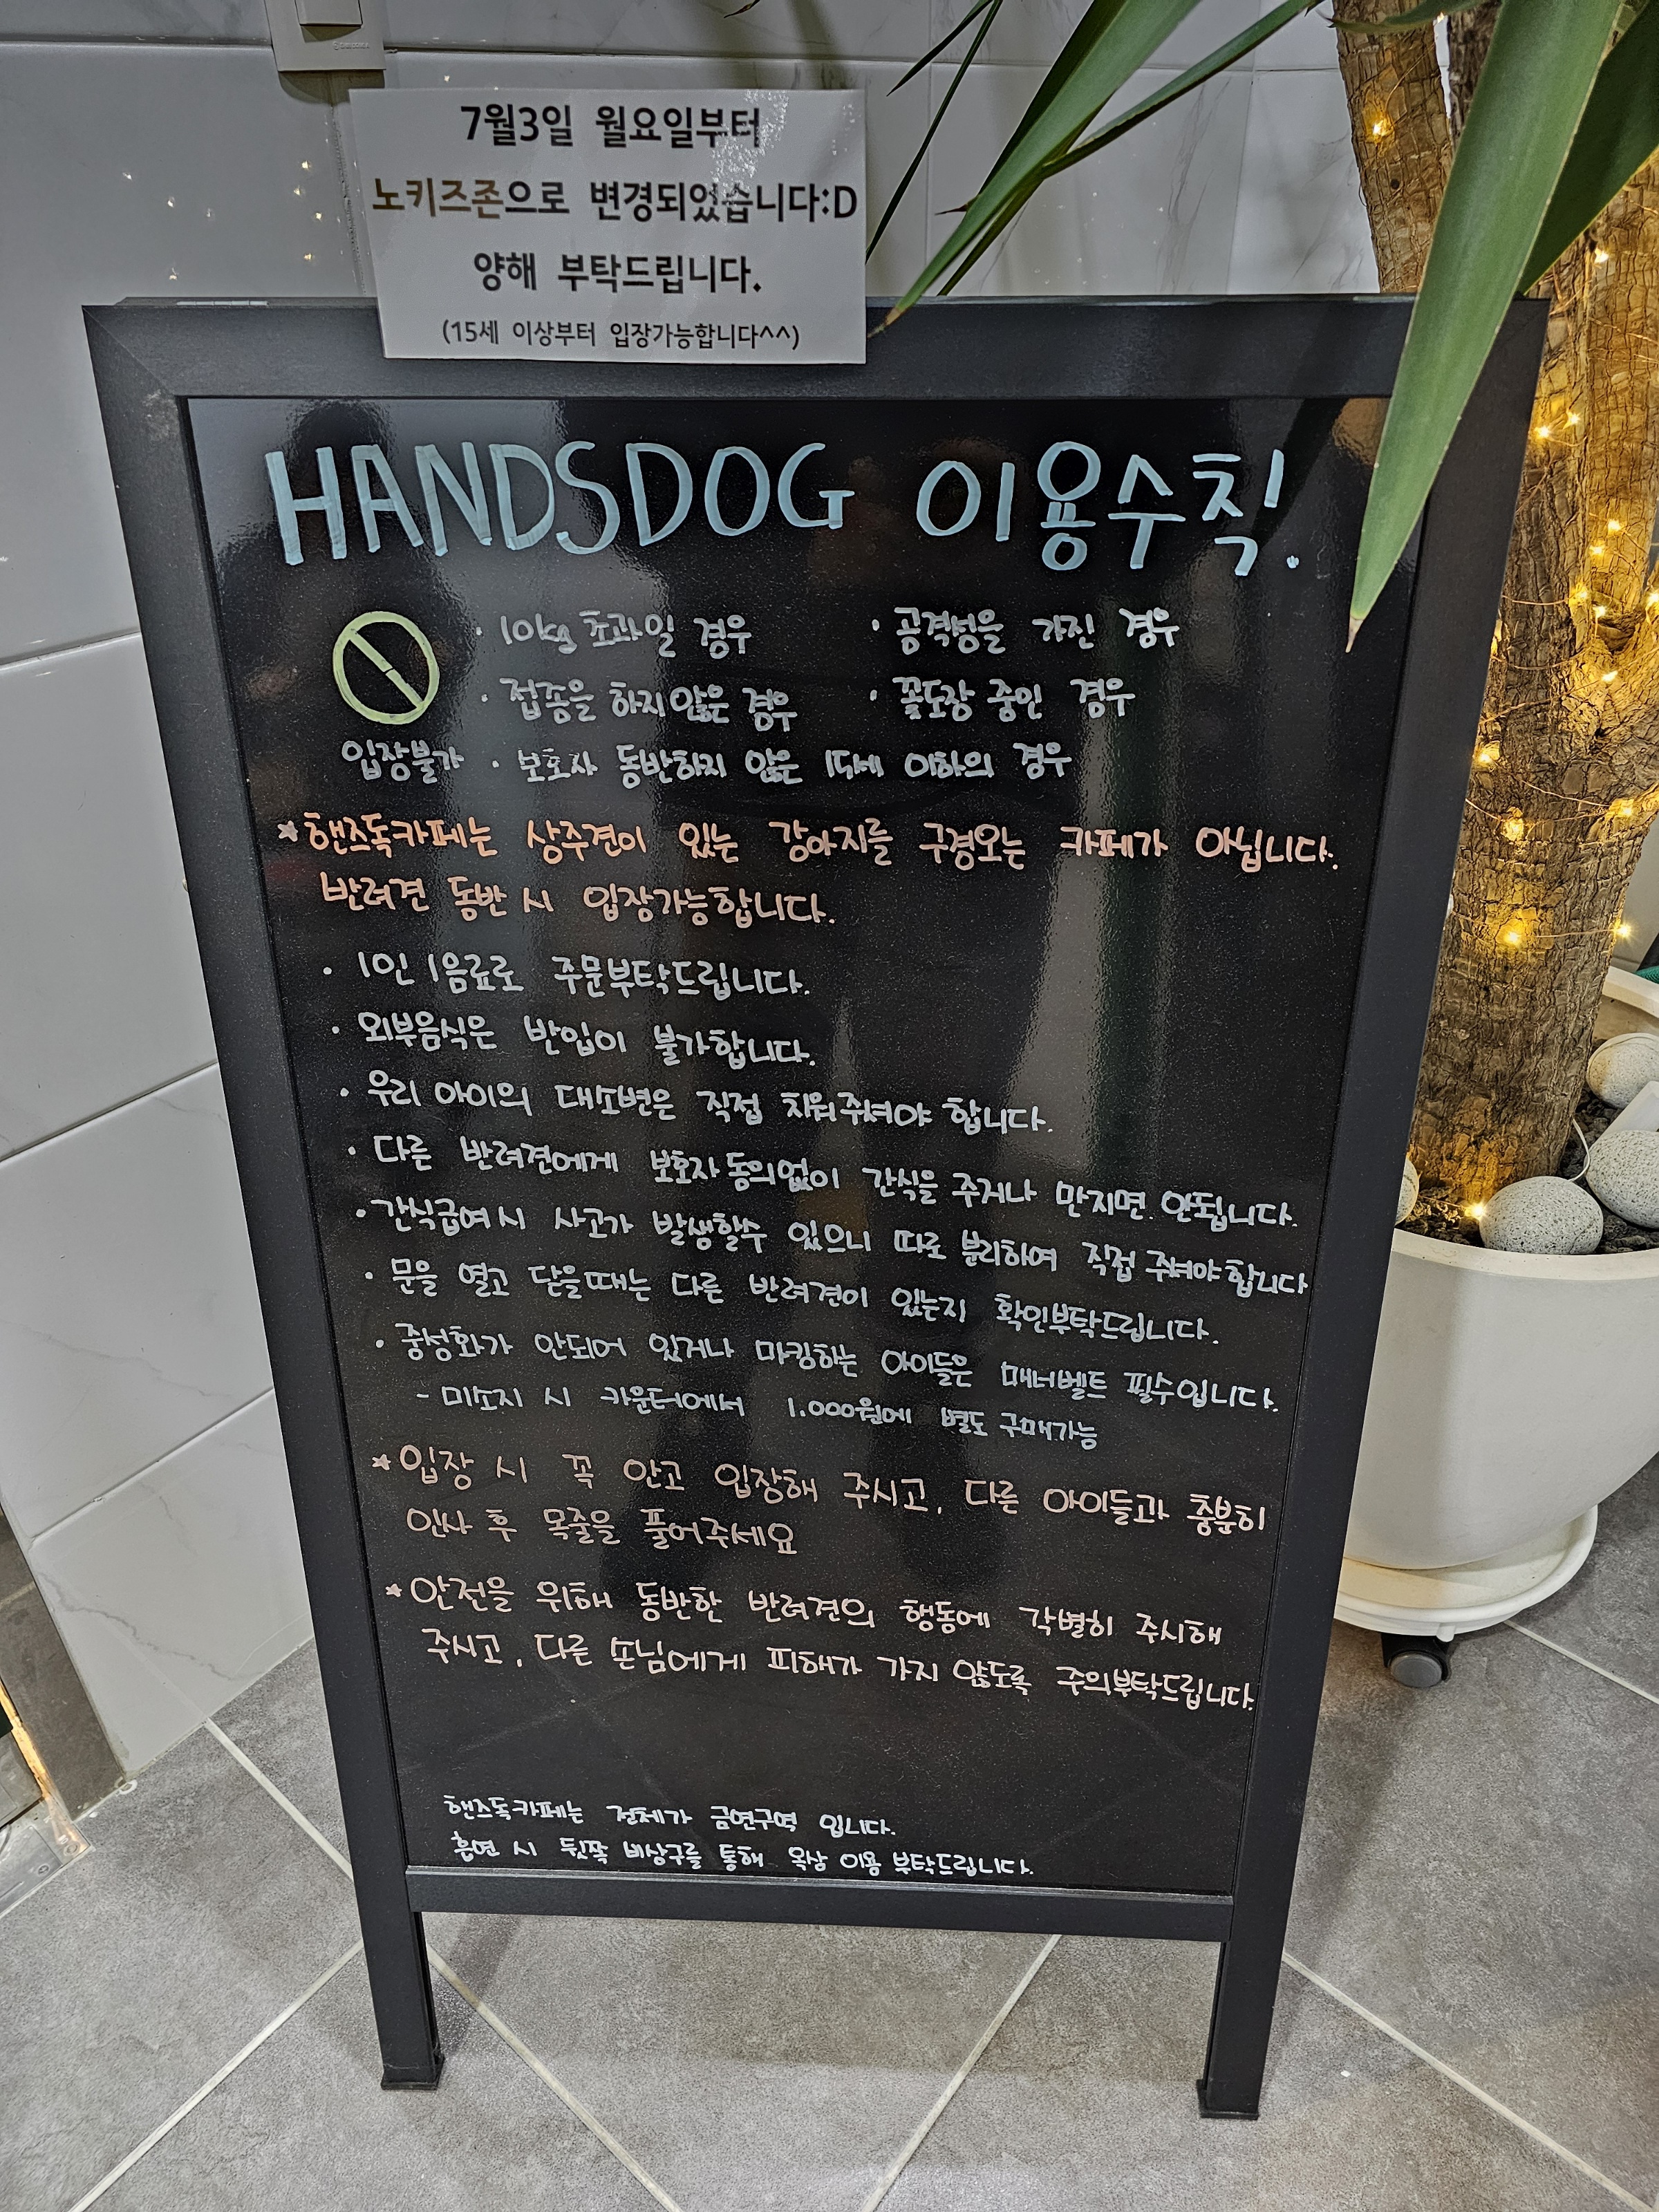 7월3일 월요일부터
노키즈존으로 변경되었습니다:D
양해 부탁드립니다.
(15세 이상부터 입장가능합니다^^)
HANDSDOG 이용수칙.
· 10kg 초과일 경우 · 공격성을 가진 경우
· 접종을 하지않은 경우 · 꽃도장 중인 경우
입장불가 · 보호자 동반하지 않은 15세 이하의 경우
* 핸즈독카페는 상주견이 있는 강아지를 구경오는 카페가 아닙니다.
반려견 동반 시 입장가능합니다.
· 1인 1음료로 주문부탁드립니다.
· 외부음식은 반입이 불가합니다.
· 우리 아이의 대소변은 직접 치워주셔야 합니다.
· 다른 반려견에게 보호자 동의없이 간식을 주거나 만지면 안됩니다.
· 간식급여 시 사고가 발생할수 있으니 따로 분리하여 직접 주셔야합니다
· 문을 열고 닫을때는 다른 반려견이 있는지 확인부탁드립니다.
· 중성화가 안되어 있거나 마킹하는 아이들은 매너벨트 필수입니다.
- 미소지 시 카운터에서 1.000원에 별도 구매가능
* 입장 시 꼭 안고 입장해 주시고, 다른 아이들과 충분히
인사 후 목줄을 풀어주세요
* 안전을 위해 동반한 반려견의 행동에 각별히 주시해
주시고, 다른 손님에게 피해가 가지 않도록 주의부탁드립니다.
핸즈독카페는 전체가 금연구역 입니다.
흡연 시 뒷쪽 비상구를 통해 옥상 이용 부탁드립니다.